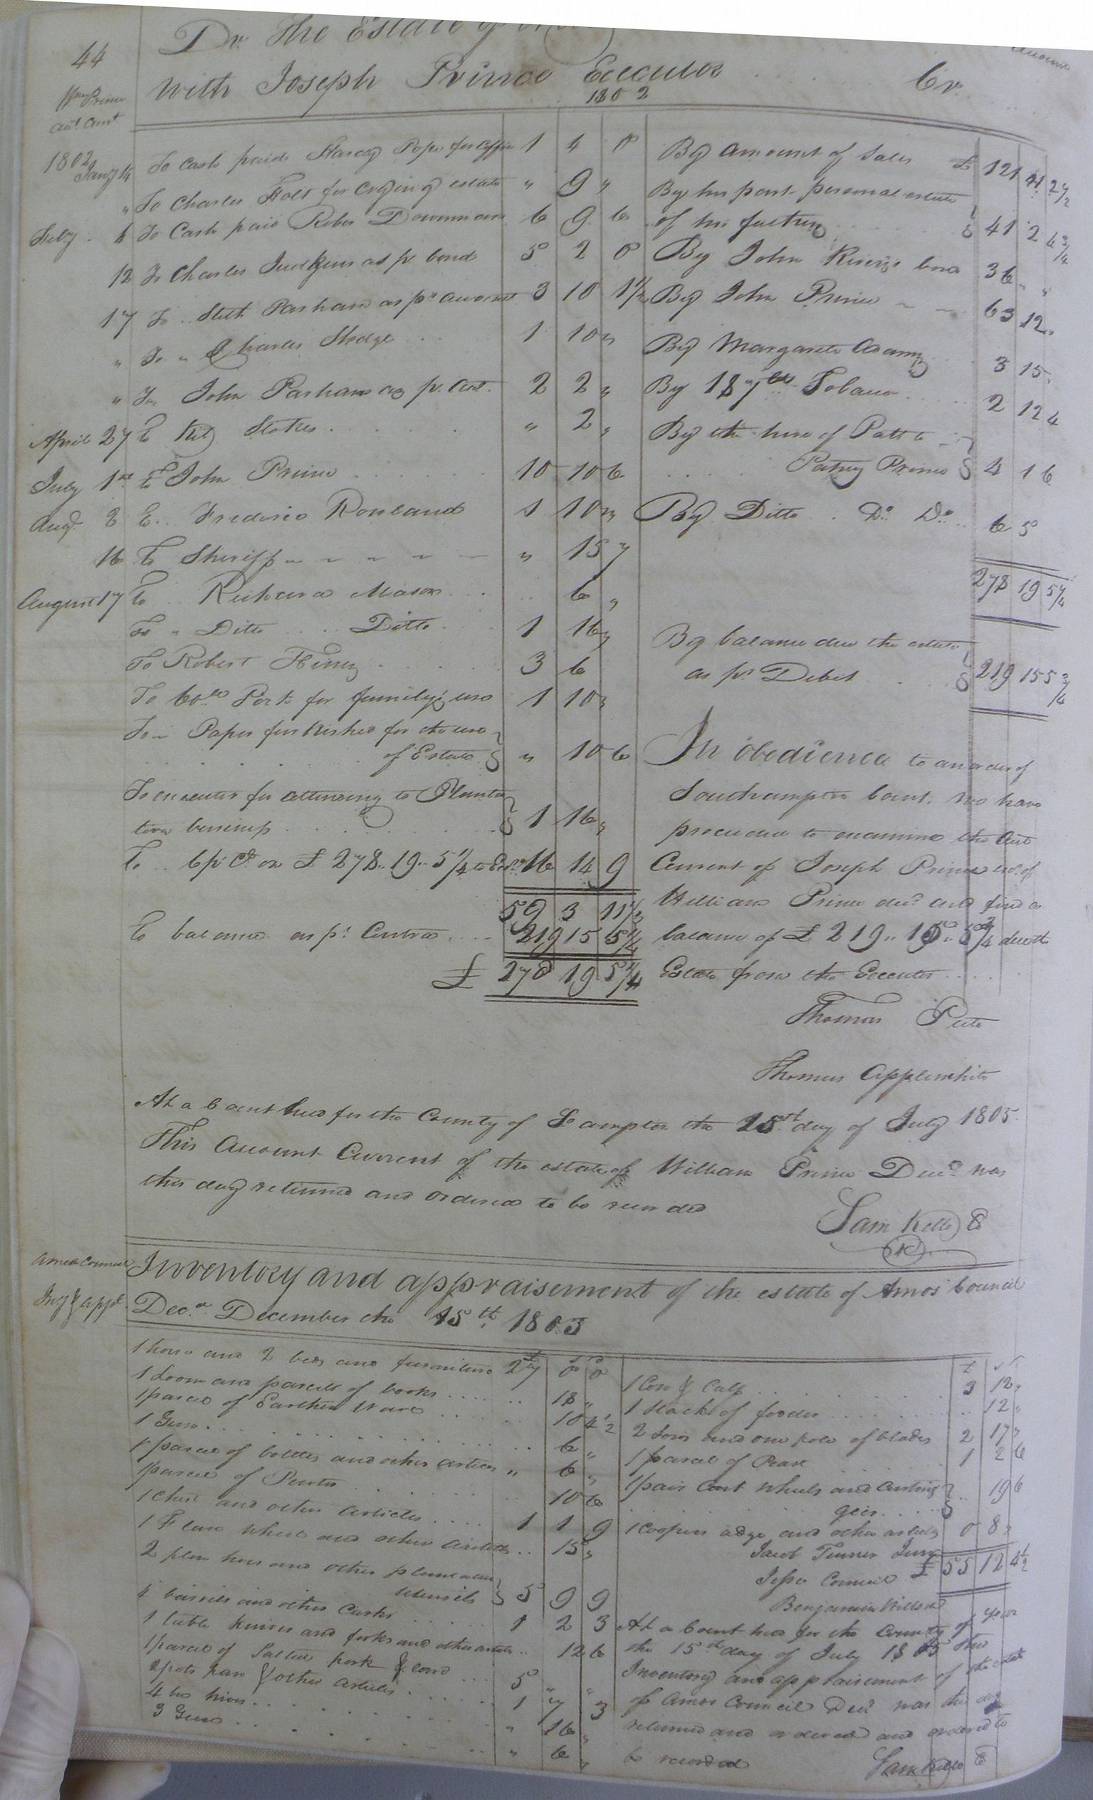 44
Dr. The Estate of
with Joseph Prince Executor Cr.
1802
Wm Prince
act Curt
1802
Jany 14 To Cash paid Pope for 1 4 0
" To Charles Holt for crying estate " 9 "
Feby. 6 To Cash paid 6 9 6
12 To Charles Judkins as pr. bond 5 2 0
17 To Seth Parham as pr account 3 10 1½
" To " Charles 1 10 "
" To John Parham as pr. act. 2 2 "
April 27 To Stokes " 2 "
July 1st To John Prince 10 10 6
Augt 8 To Frederic Rowland 1 10 "
16 To Sheriff " 15 7
August 17 To Richard Mason 6 "
To " Ditto Ditto 1 16 "
To Robert 3 6
To Pork for family use 1 10 "
To Paper furnished for the use
of Estate " 10 6
To executor for attending to Planta
tion business 1 16 "
To 6 pr Ct on £ 278. 19. 5¼ 16 14 9
59 3 11½
To balance as pr. Contra 219 15 5¾
£ 278 19 5¼
By amount of Sales £ 121
By his part personal estate
of his father 41 2 4¾
By John bond 36 " "
By John Prince 63 12
By Margarett 3 15
By 187 lbs Tobacco 2 12 4
By the hire of Patt to
Patsey Prince 4 1 6
By Ditto Do Do 6 5
278 19 5¼
By balance due the estate
as pr Debet 219 15 5¾
In obedience to an order of
Southampton Court, we have
proceeded to examine the Act
Current of Joseph Prince of
William Prince decd and find a
balance of £ 219 .. 15 .. 5¾ due the
Estate from the Executor
Thomas Pete
Thomas Applewhite
At a Court held for the County of So ampton the 15th day of July 1805.
This Account Current of the estate of William Prince Decd was
this day returned and ordered to be recorded
Sam Kello C
Amos Council
Invy & Appt
Inventory and appraisement of the estate of Amos Council
Decd December the 15th 1803
1 horse and 2 beds and furniture
1 Loom and parcel of books 18 "
1 parcel of Earthen Ware 10 4½
1 Gun 6 "
1 parcel of bottles and other articles " 6 "
1 parcel of Pewter 10 6
1 chest and other articles 1 1 9
1 Flax wheel and other articles 15 "
2 plow hoes and other plantation
utensils 5 9 9
4 barrels and other Casks 1 2 3
1 table knives and forks and other articles 12 6
1 parcel of Salted pork & lard 5 " "
2 pots pan & other articles 1 7 3
4 bee hives " 16 "
3 Geese " 6 "
1 Cow & Calf 3 12 "
1 Stack of fodder 12 "
2 Sows and one pole of blades 2 17 "
1 parcel of Pease 1 2 6
1 pair Cart Wheels and Carting
geer 19 6
1 Coopers adze and other articles 0 8 "
Jacob Turner Junr £ 55 12 4½
Jesse Council
Benjamin
At a Court held for the County of
the 15th day of July 1805 this
Inventory and appraisement of the estate
of Amos Council Decd was this day
returned and ordered and ordered to
be recorded Sam Kello C